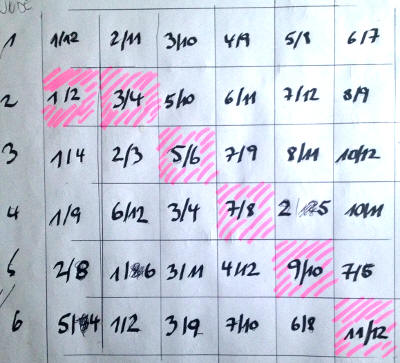 1 1/12 2/11 3/10 4/9 5/8 6/7
2 1/2 3/4 5/10 6/11 7/12 8/9
3 1/4 2/3 5/6 7/9 8/11 10/12
4 1/9 6/12 3/4 7/8 2/5 10/11
5 2/8 1/6 3/11 4/12 9/10 7/5
6 5/4 1/2 3/9 7/10 6/8 11/12